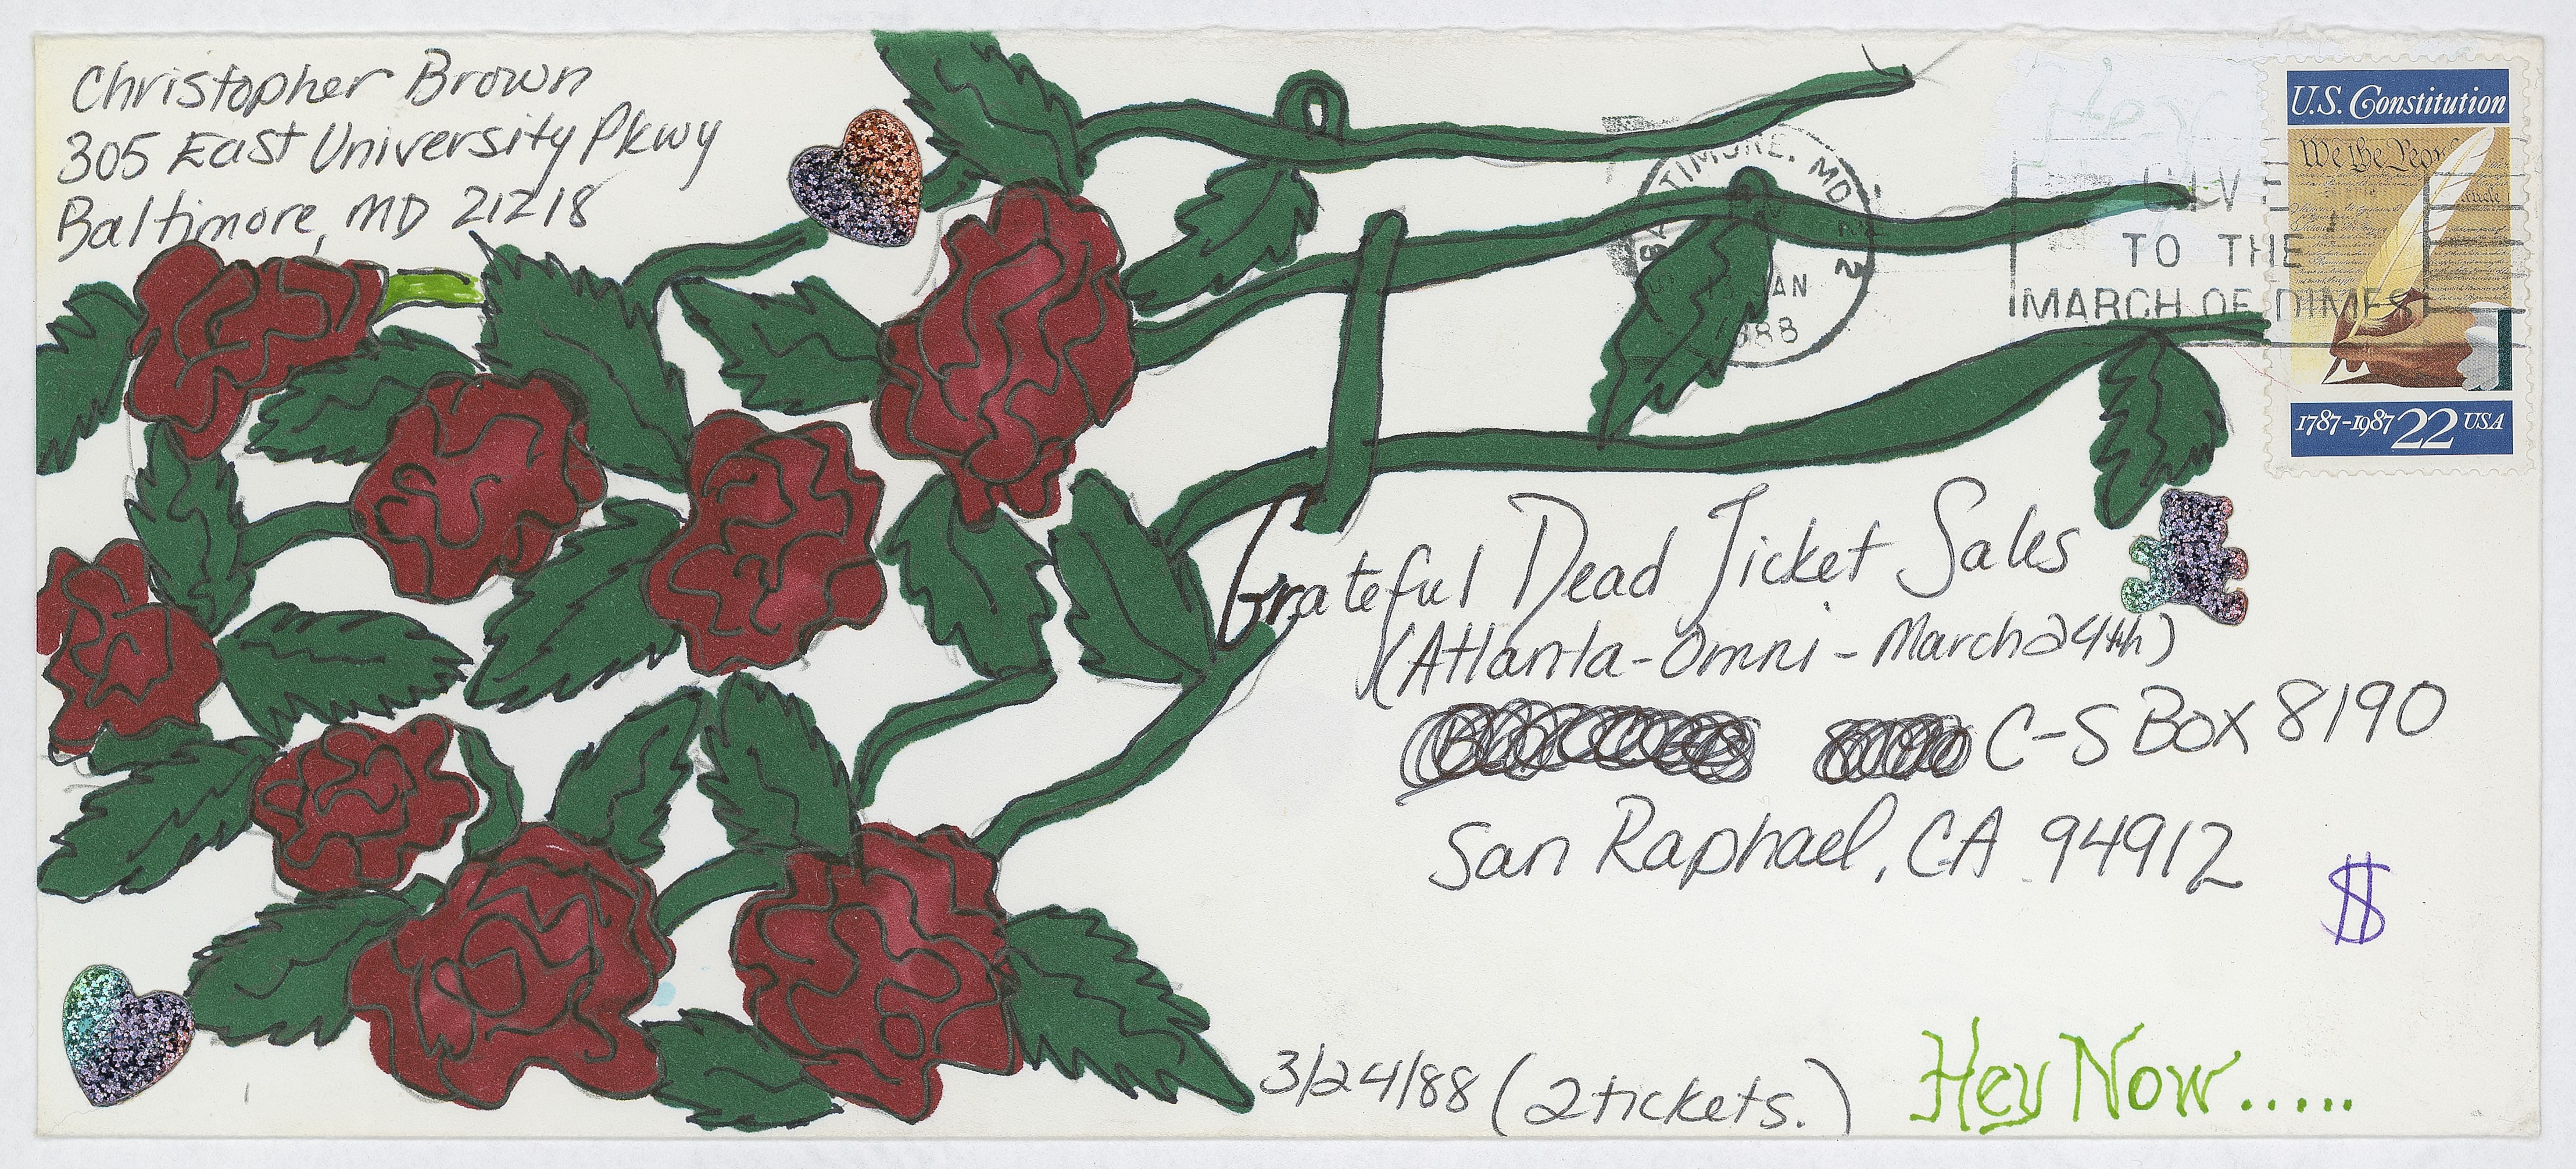 Christopher Brown
305 East University Pkwy
Baltimore, MD 21218
U.S. Constitution
We the Peop
1787-1987 22 USA
TIMORE, MD
JAN
1988
GIVE
TO THE
MARCH OF DIMES
Grateful Dead Ticket Sales
(Atlanta-Omni-March 24th)
C-S Box 8190
San Raphael, CA 94912
$
3/24/88 (2 tickets.)
Hey Now.....